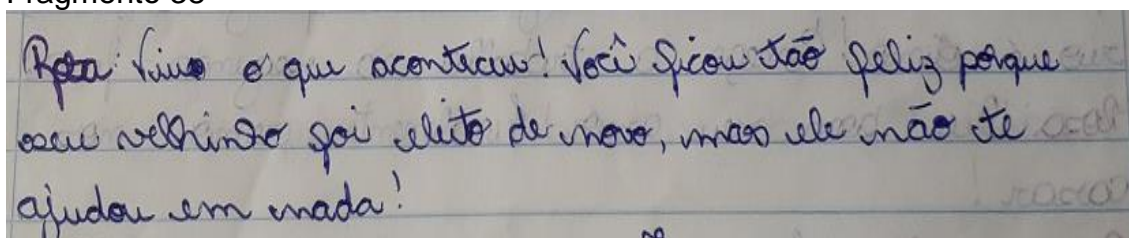 Fragmento
Viu o que aconteceu! Você ficou tão feliz porque
seu velhinho foi eleito de novo, mas ele não te
ajudou em nada!